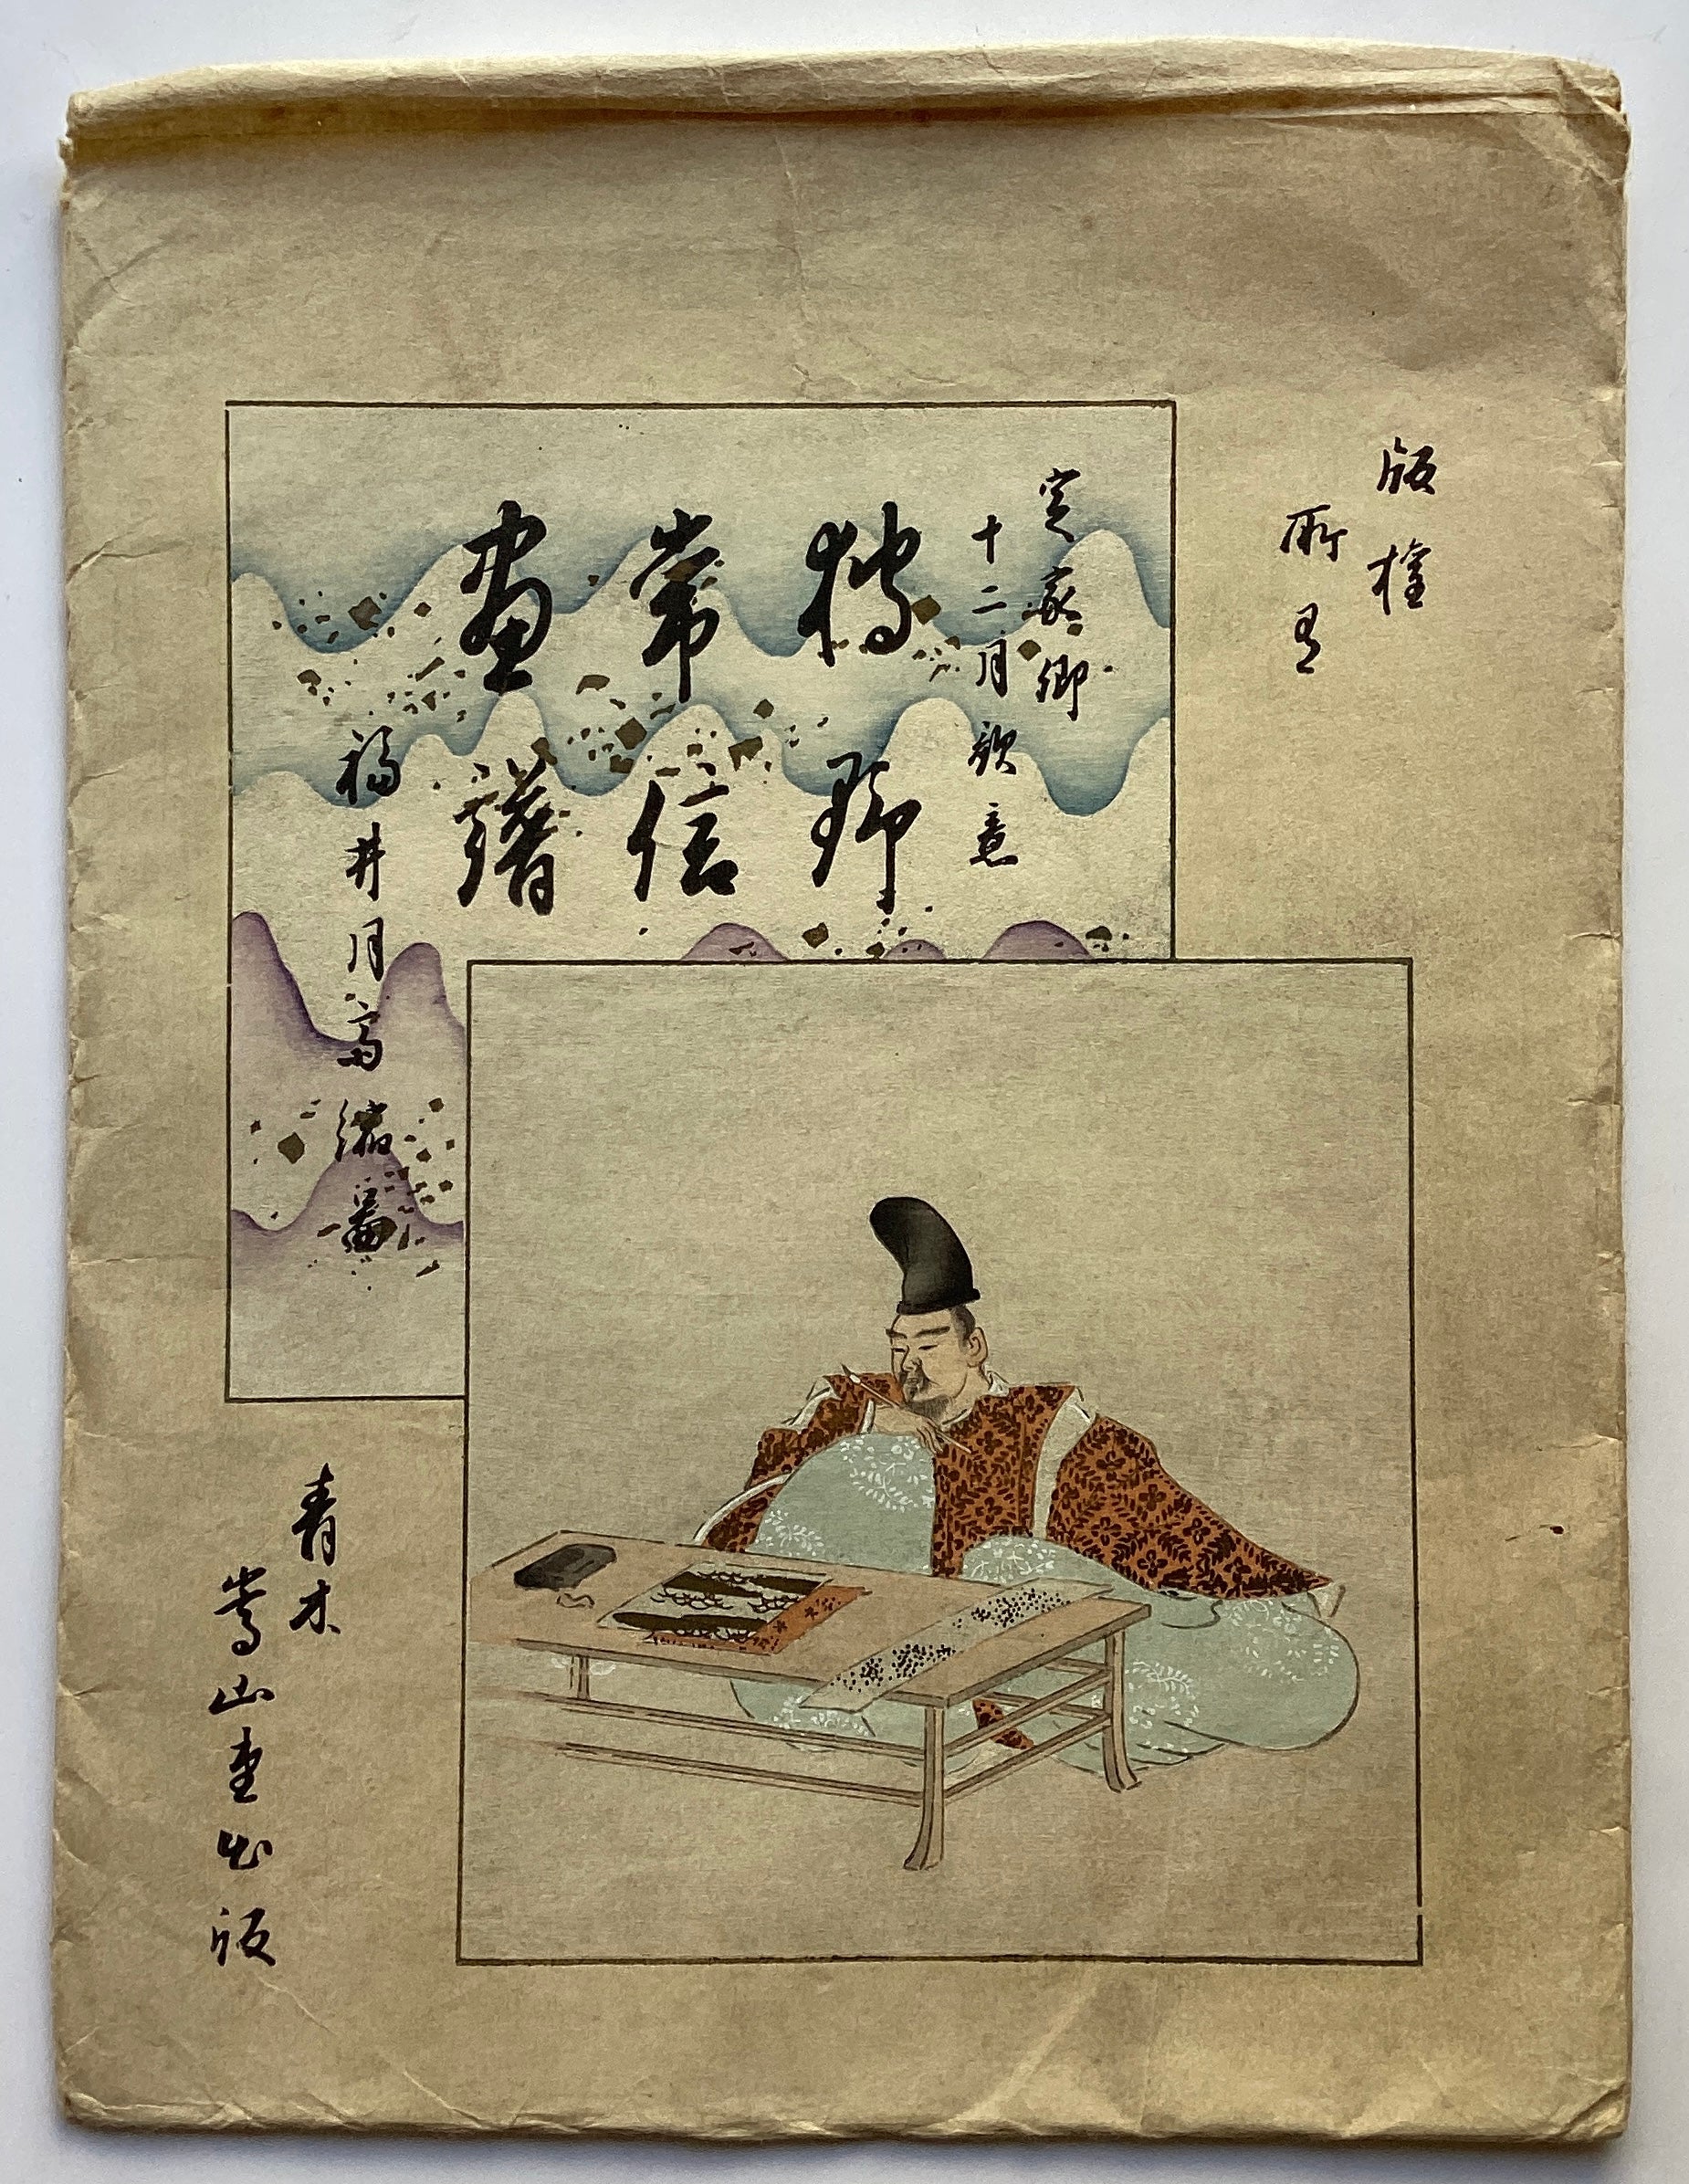 版權
所有
定家卿
十二月歌意
狩野
常信
畫譜
福井月斎縮圖
青木
嵩山堂出版